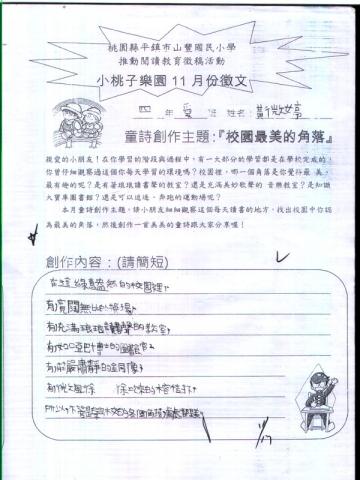 桃園縣平鎮市山豐國民小學
推動閱讀教育徵稿活動
小桃子樂園11月份徵文
四 年 愛 班 姓名：
童詩創作主題：『校園最美的角落』
親愛的小朋友！在你學習的階段與過程中，有一大部分的學習都是在學校完成的，
你曾仔細觀察過這個你每天學習的環境嗎？校園裡，哪一個角落是你覺得最 美、
最有趣的呢？是有著琅琅讀書聲的教室？還是充滿美妙歌聲的 音樂教室？是知識
大寶庫圖書館？還是可以追逐、奔跑的運動場呢？
本月童詩創作主題，請小朋友細細觀察這個每天讀書的地方，找出校園中你認
為最美的角落，然後創作一首美美的童詩跟大家分享喔！
創作內容：(請簡短)
在這綠意盎然的校園裡，
有寬闊無比的操場，
有充滿琅琅讀書聲的教室，
有如亞巴博士的圖館，
有嚴肅靜的
有
所以
11/17